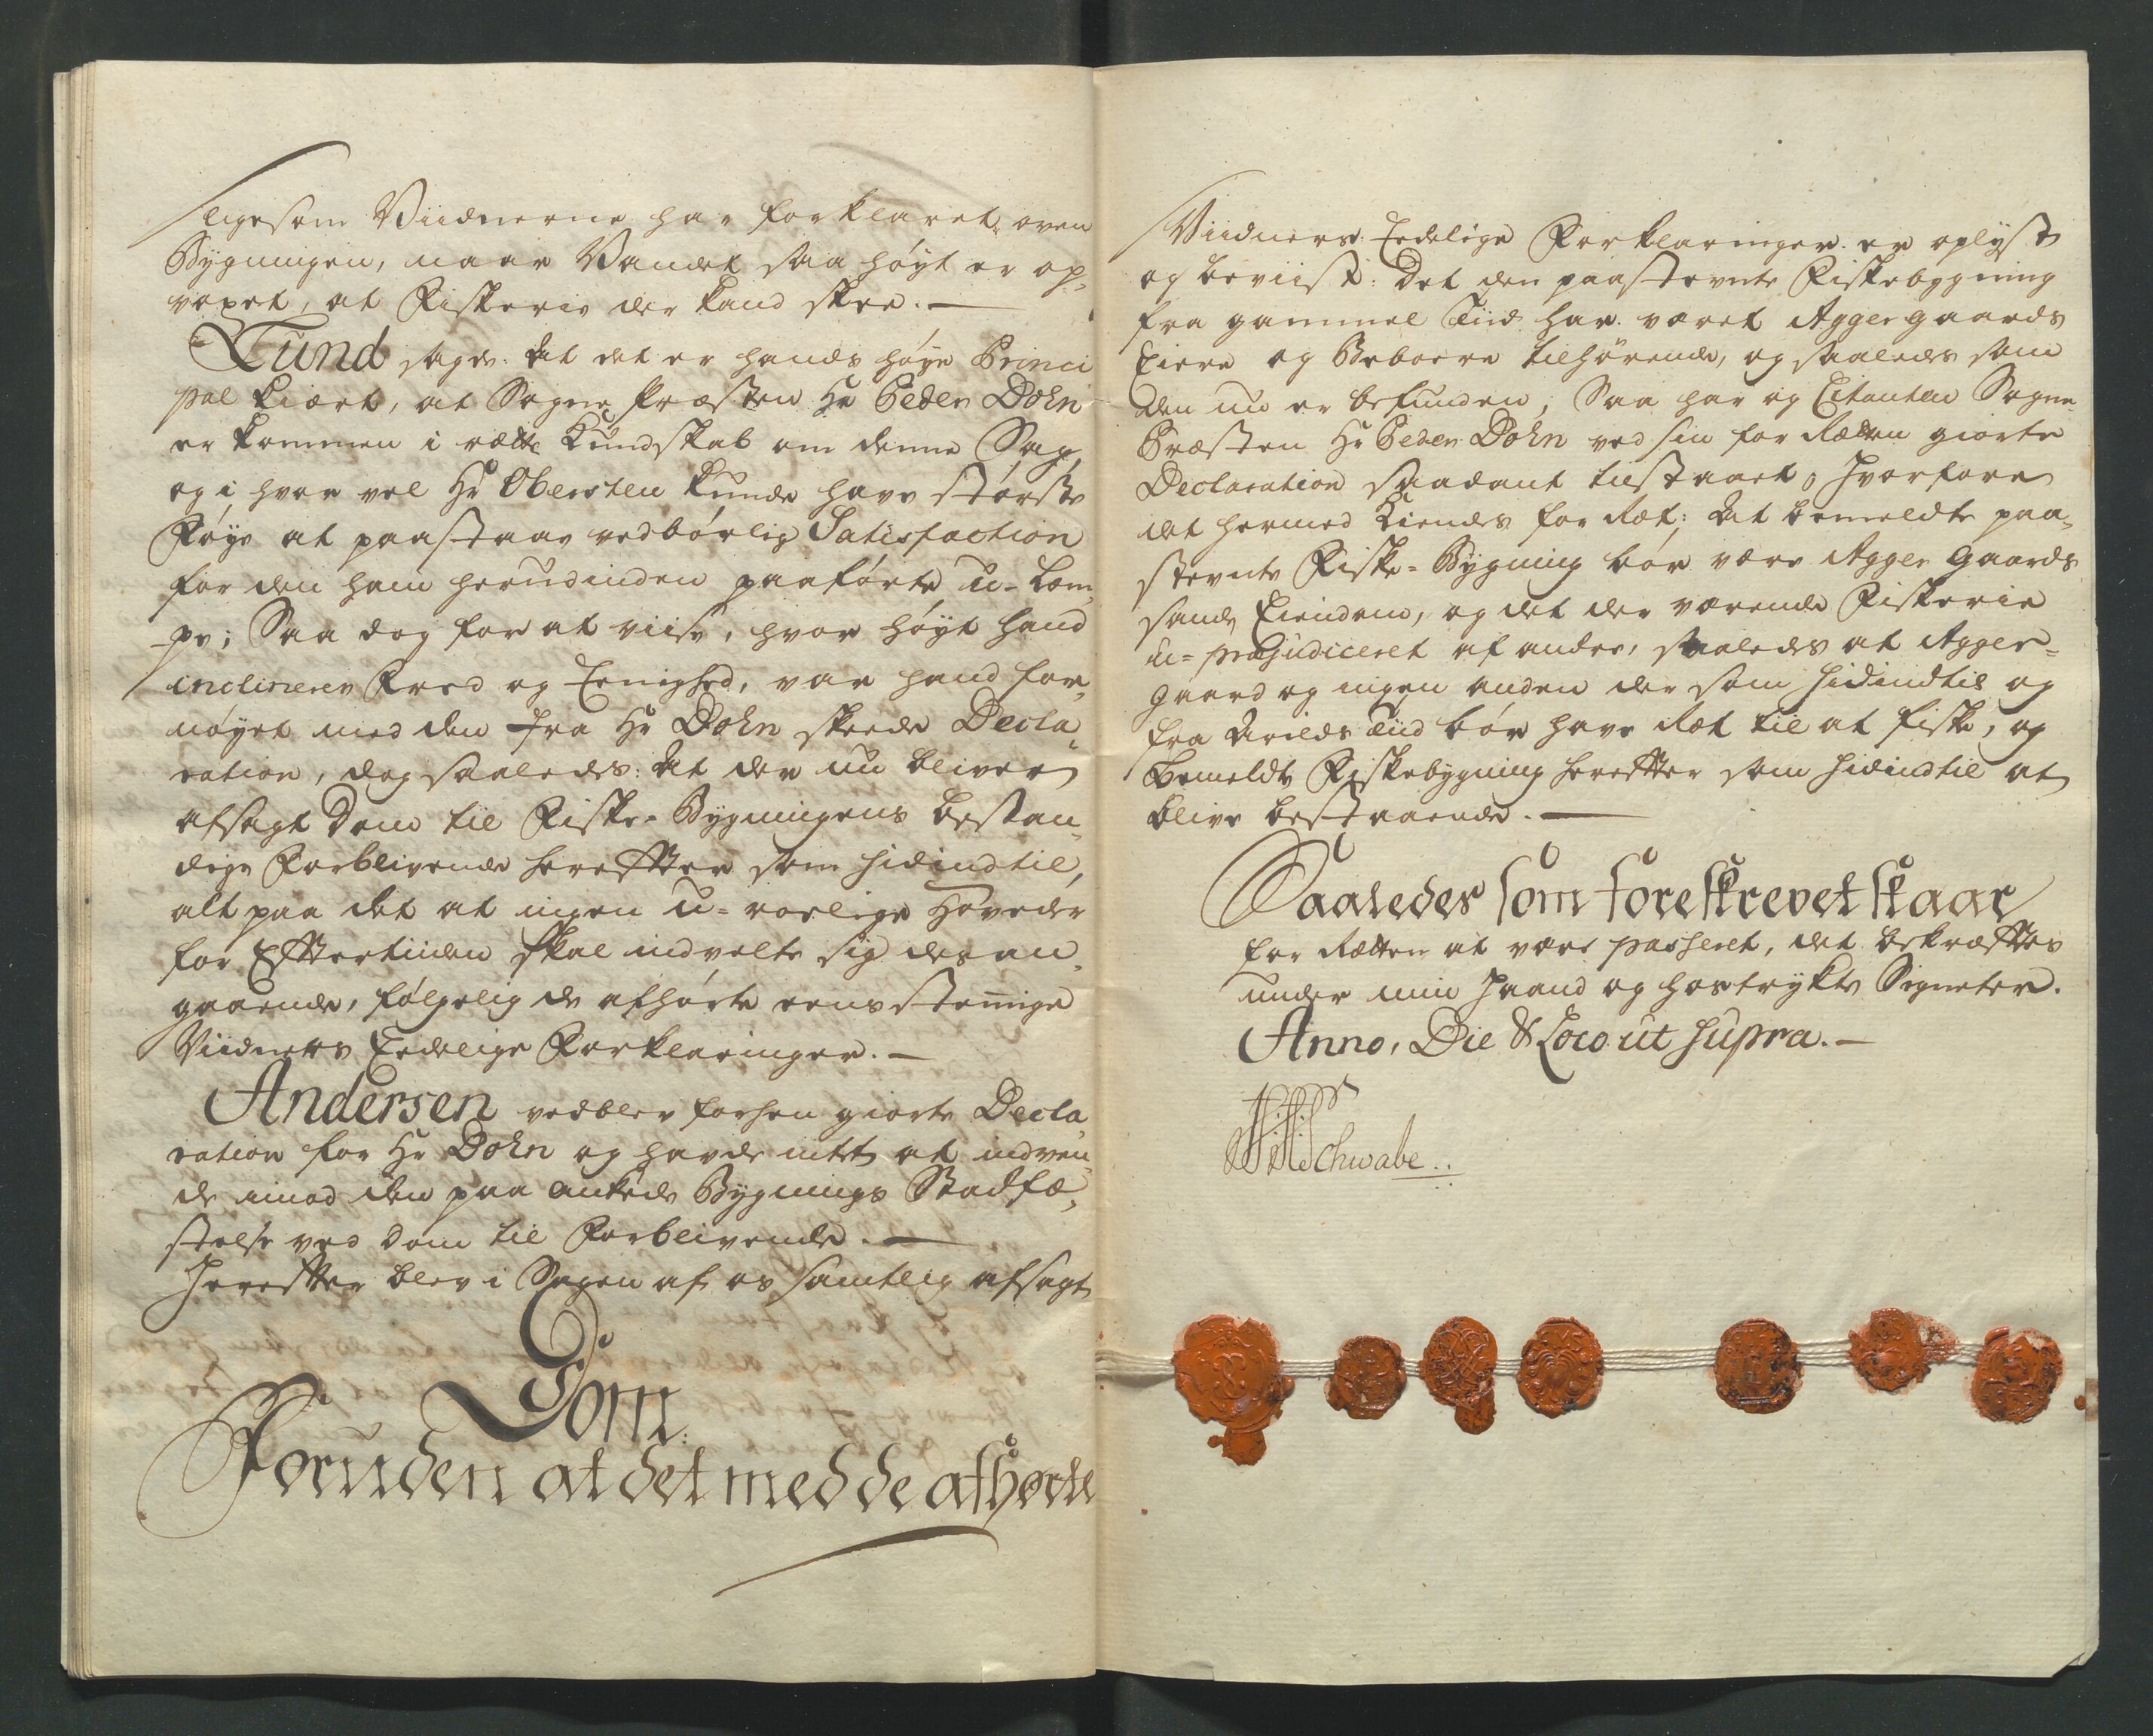 ligesom Viidnerne har forklaret, oven
Bygningen, naar Vandet saa høyt er op-
voxet, at Fiskerie der kand skee. —
Lund sagde: At det er hands høye Princi
pal kiært, at Sogne Præsten Hr Peder Dohn
er kommen i rætte Kundskab om denne Sag,
og i hvor vel Hr Obersten kunde have største
Føye at paastaae vedbørlig Satisfaction
for den ham herudinden paaførte u-Lem,
pe; Saa dog for at viise, hvor høyt hand
inclinerer Fred og Eenighed, var hand for,
nøyet med den fra Hr Dohn skeede Decla,
ration, dog saaledes: At der nu bliver
afsagt Dom til Fiske-Bygningens bestan,
dige Forblivende herefter som hidindtil,
alt paa det at ingen u-roelige Hoveder
for Eftertiiden skal indvelte sig desan,
gaaende, følgelig de afhørte eenstemige
Viidners Eedelige Forklaringer. —
Andersen vedblev forhen giorte Decla,
ration for Hr Dohn og havde intet at indven,
de imod den paa ankede Bygnings Stadfæ,
stelse ved Dom til Forblivende. —
Herefter blev i Sagen af os samtlig afsagt
Dom:
Foruden at det med de afhørte
Viidners Eedelige Forklaringer er oplyst
og beviist: Det den paastevnte Fiskebygning
fra gammel Tiid har været Aggergaards
Eiere og Beboere tilhørende, og saaledes som
den nu er befunden, Saa har og Citanten Sogne-
Præsten Hr Peder Dohn ved sin for Rætten giorte
Declaration saadant tilstaaet, Hvorfore
det hermed Kiendes for Ræt: At bemeldte paa,
stevnte Fiske-Bygning bør være Agger Gaards
sande Eiendom, og det der værende Fiskerie
u-præjudiceret af andre, saaledes at Agger-
gaard og ingen anden der som hidindtil og
fra Arilds Tiid bør have Ræt til at fiske, og
Bemeldte Fiskebygning herefter som hidindtil at
blive bestaaende. —
Saaledes som foreskrevet staar
for Rætten at være passeret, det bekræftes
under min Haand og hostrykte Signeter.
Anno, Die & Loco ut supra. —
Schwabe